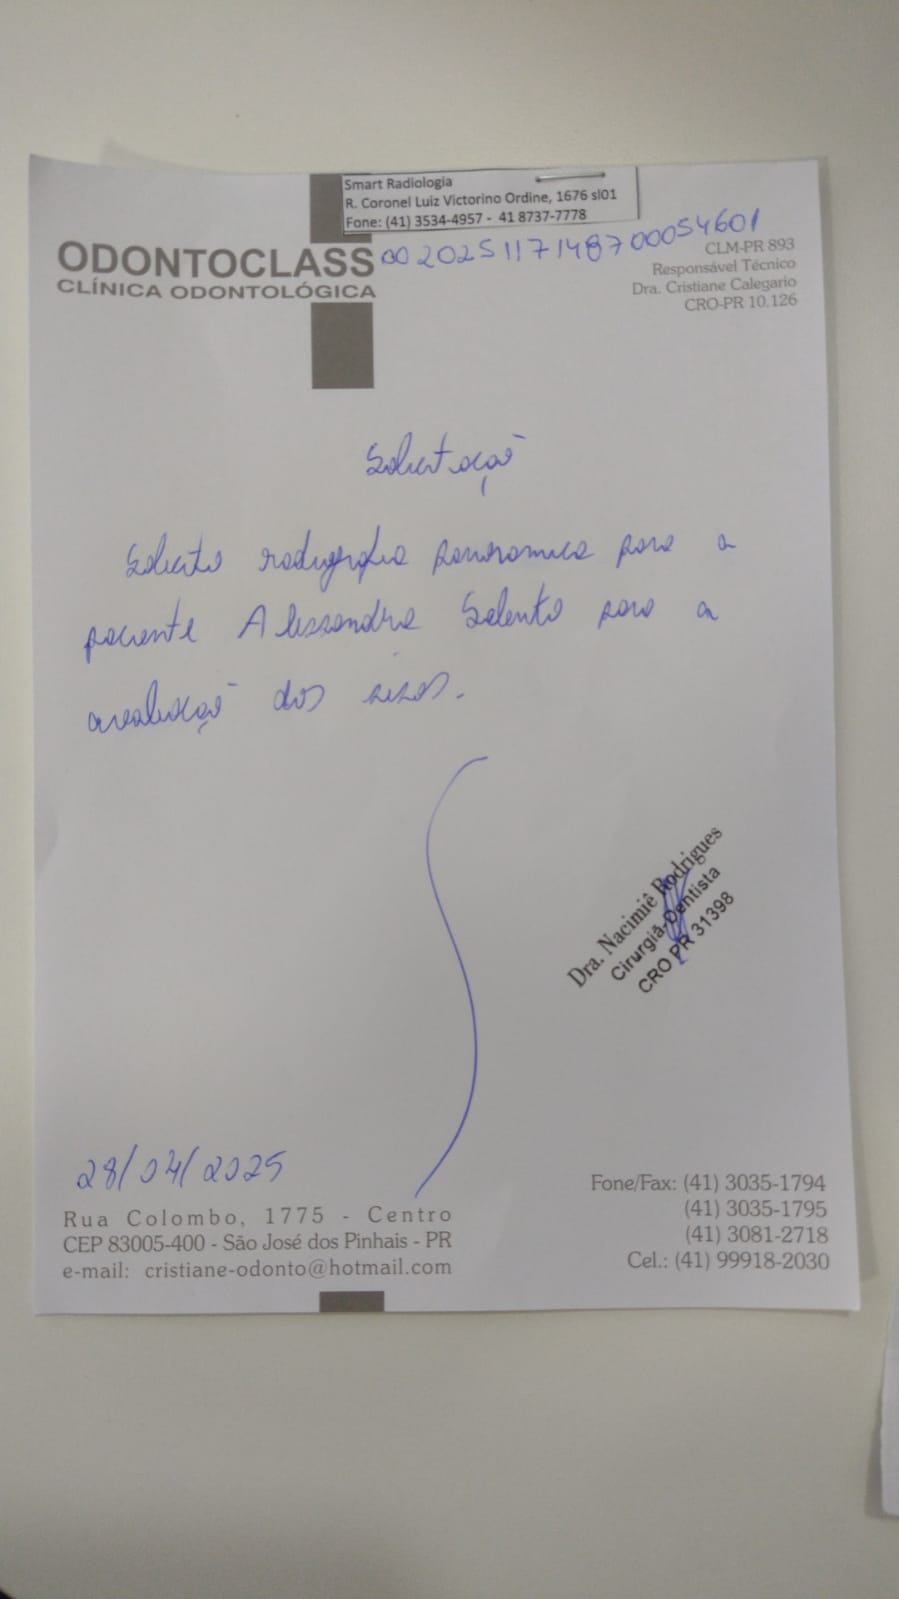 Smart Radiologia
R. Coronel Luiz Victorino Ordine, 1676 sl01
Fone: (41) 3534-4957 - 41 8737-7778
002025117148700054601
ODONTOCLASS
CLÍNICA ODONTOLÓGICA
CLM-PR 893
Responsável Técnico
Dra. Cristiane Calegario
CRO-PR 10.126
Solicitação
Solicito radiografia panoramica para a
paciente Alessandra Selento para a
avaliação dos sisos.
Dra. Nacimiê Rodrigues
Cirurgiã-Dentista
CRO PR 31398
28/04/2025
Rua Colombo, 1775 - Centro
CEP 83005-400 - São José dos Pinhais - PR
e-mail: cristiane-odonto@hotmail.com
Fone/Fax: (41) 3035-1794
(41) 3035-1795
(41) 3081-2718
Cel.: (41) 99918-2030